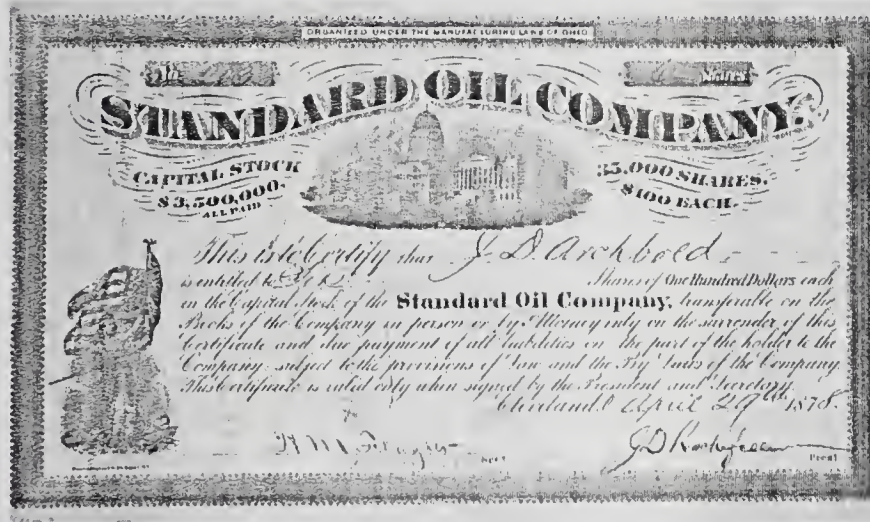 ORGANIZED UNDER THE MANUFACTURING LAWS OF OHIO
No
Shares
STANDARD OIL COMPANY.
CAPITAL STOCK
$3,500,000.
ALL PAID
35,000 SHARES.
$100 EACH.
This is to Certify that J. D. Archbold
is entitled to Shares of One Hundred Dollars each
in the Capital Stock of the Standard Oil Company, transferable on the
Books of the Company in person or by Attorney only on the surrender of this
Certificate and due payment of all liabilities on the part of the holder to the
Company, subject to the provisions of Law and the By Laws of the Company.
This Certificate is valid only when signed by the President and Secretary.
Cleveland, O April 29th 1878.
H M Flagler Secy
J D Rockefeller Prest